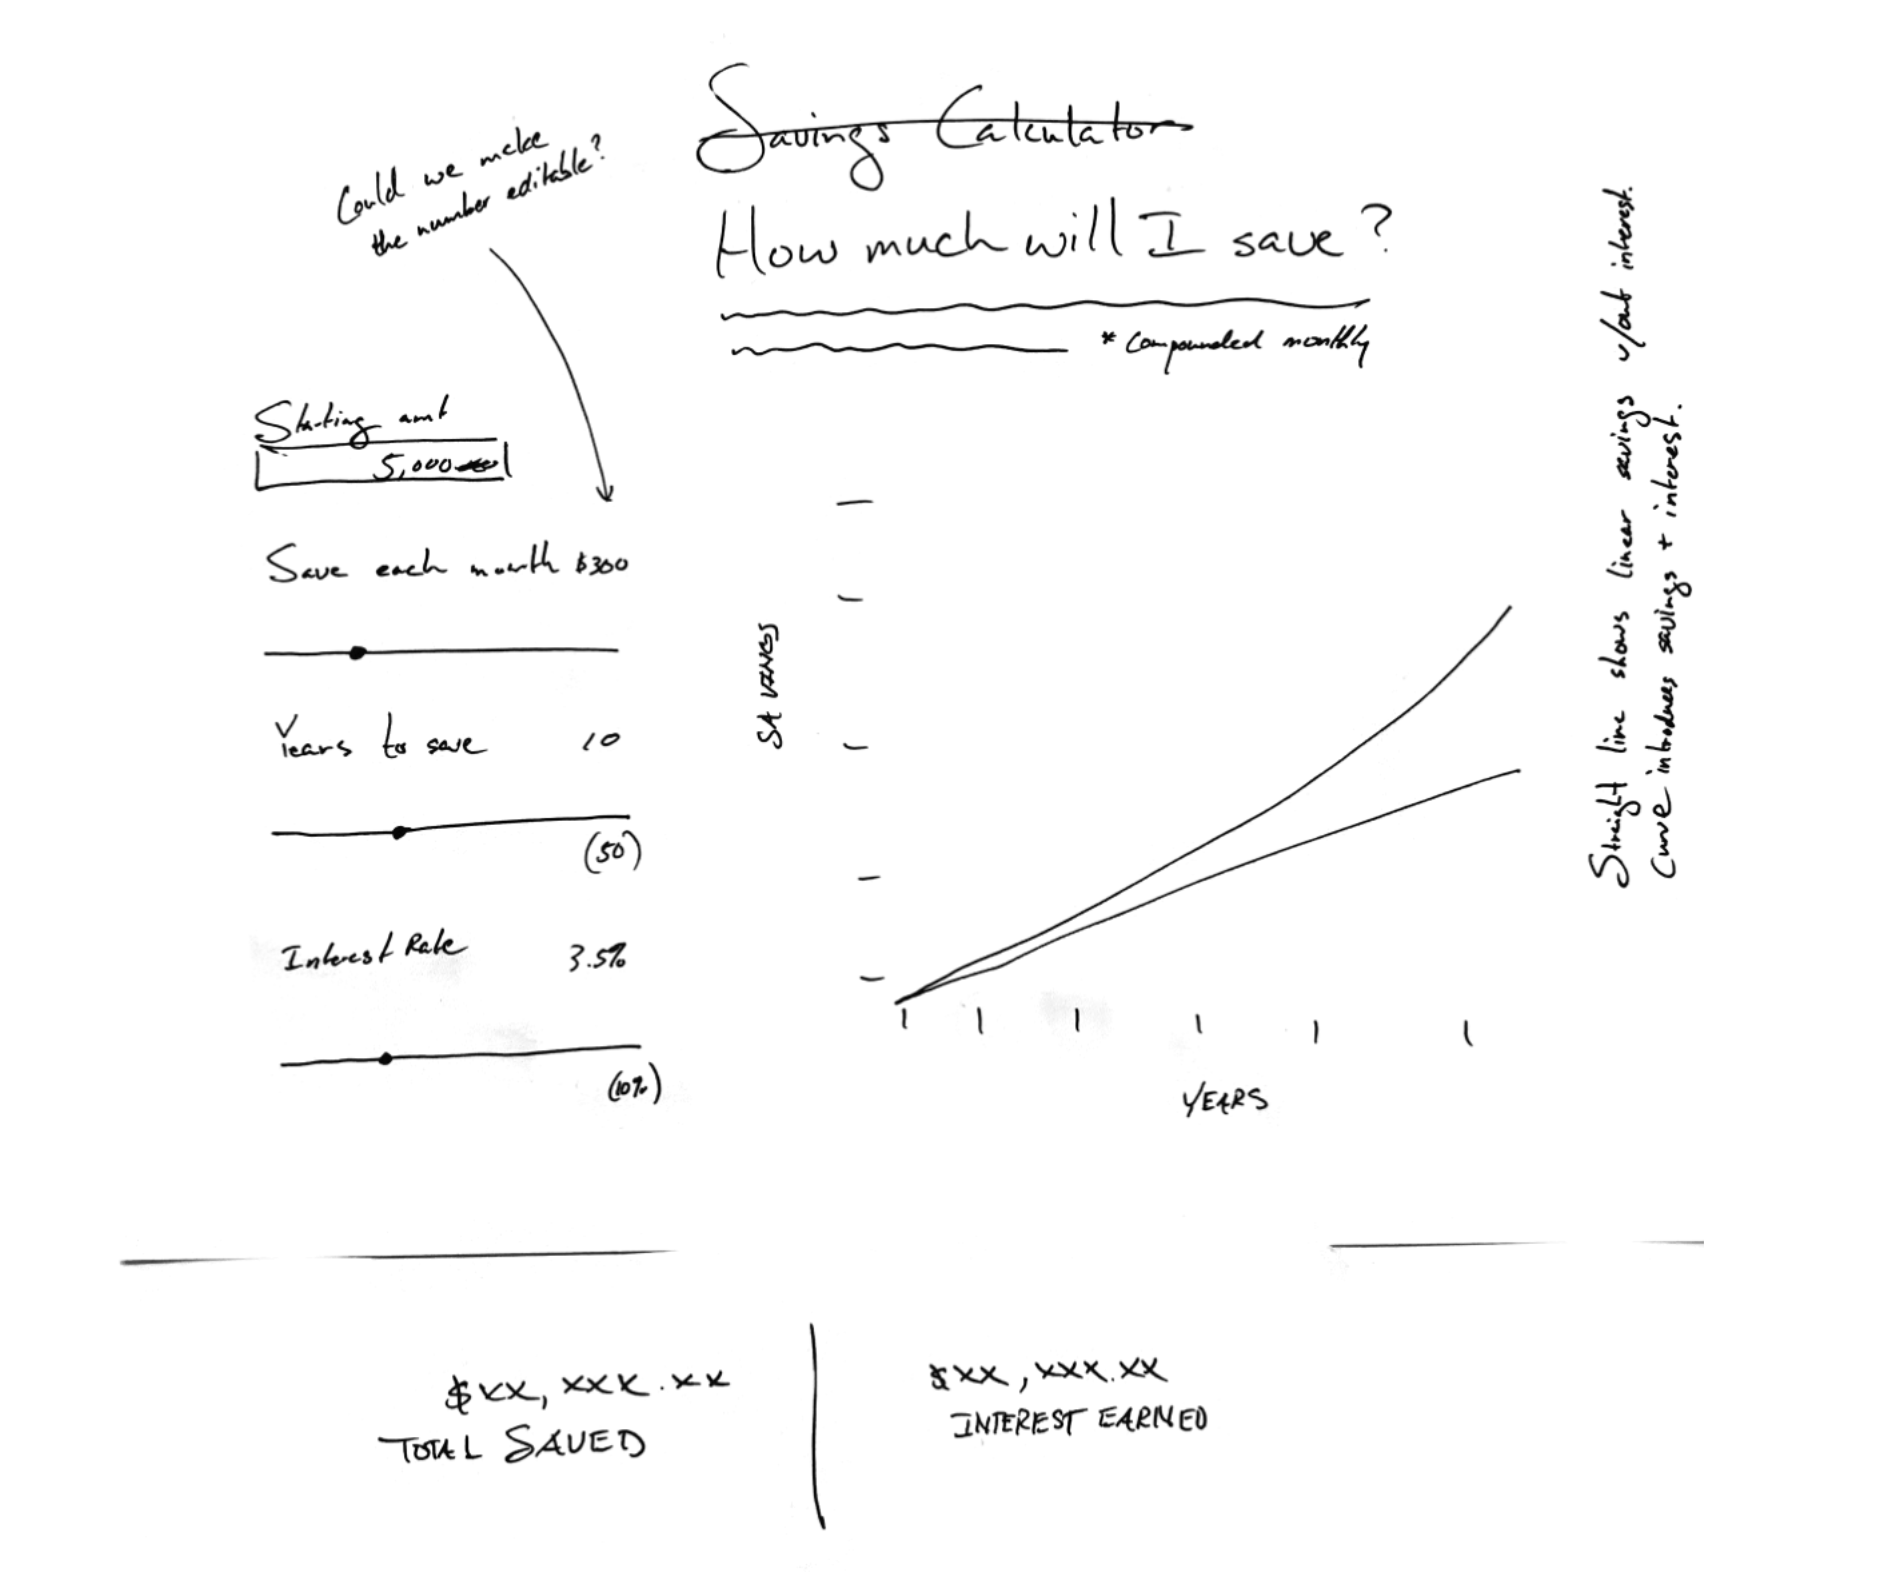 Savings Calculator
How much will I save?
* Compounded monthly
Could we make
the number editable?
Starting amt
5,000
Save each month $300
Years to save 10
(50)
Interest Rate 3.5%
(10%)
SAVINGS
YEARS
Straight line shows linear savings w/out interest.
Curve introduces savings + interest.
$xx,xxx.xx
TOTAL SAVED
$xx,xxx.xx
INTEREST EARNED